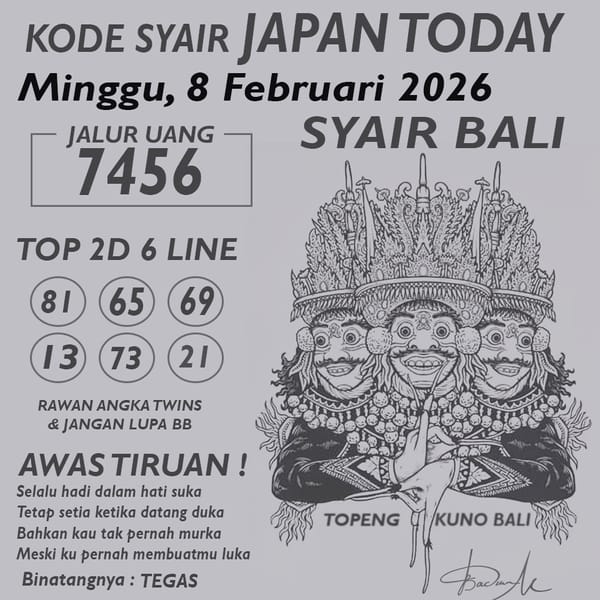 KODE SYAIR JAPAN TODAY
Minggu, 8 Februari 2026
JALUR UANG
7456
SYAIR BALI
TOP 2D 6 LINE
81 65 69
13 73 21
RAWAN ANGKA TWINS
& JANGAN LUPA BB
AWAS TIRUAN !
Selalu hadi dalam hati suka
Tetap setia ketika datang duka
Bahkan kau tak pernah murka
Meski ku pernah membuatmu luka
Binatangnya : TEGAS
TOPENG KUNO BALI